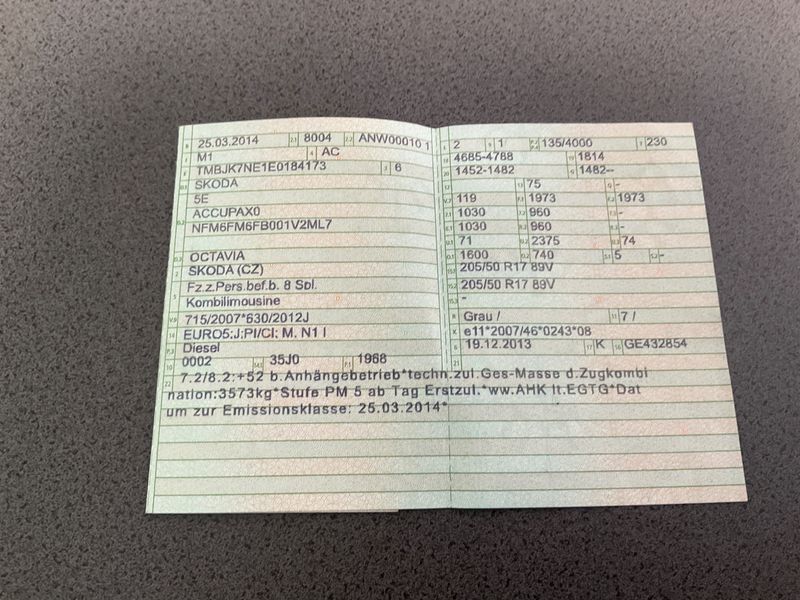 25.03.2014 8004 ANW00010 1
M1 AC
TMBJK7NE1E0184173 6
SKODA
5E
ACCUPAX0
NFM6FM6FB001V2ML7
OCTAVIA
SKODA (CZ)
Fz.z.Pers.bef.b. 8 Spl.
Kombilimousine
715/2007*630/2012J
EURO5;J;PI/CI; M, N1 I
Diesel
0002 35J0 1968
2 1 135/4000 230
4685-4788 1814
1452-1482 1482--
- 75 -
119 1973 1973
1030 960 -
1030 960 -
71 2375 74
1600 740 5 -
205/50 R17 89V
205/50 R17 89V
-
Grau / 7 /
e11*2007/46*0243*08
19.12.2013 K GE432854
7.2/8.2:+52 b.Anhängebetrieb*techn.zul.Ges-Masse d.Zugkombi
nation:3573kg*Stufe PM 5 ab Tag Erstzul.*ww.AHK lt.EGTG*Dat
um zur Emissionsklasse: 25.03.2014*